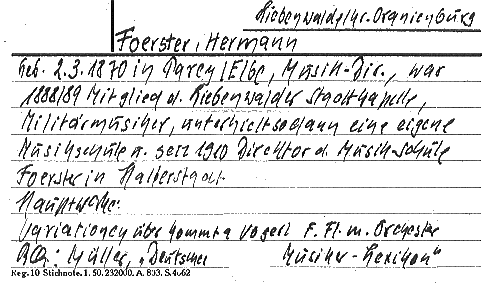 Liebenwalde/Kr. Oranienburg
Foerster, Hermann
Geb. 2.3.1870 in Parey/Elbe, Musik-Dir., war
1888/89 Mitglied d. Liebenwalder Stadtkapelle,
Militärmusiker, unterhielt sodann eine eigene
Musikschule u. seit 1910 Direktor d. Musikschule
Foerster in Halberstadt.
Hauptwerke:
Variationen über Kommt a Vogerl F. Fl. m. Orchester
Müller, „Deutsches Musiker-Lexikon"
Reg. 10 Stichnote. 1. 50. 232000. A. 803. S. 4062